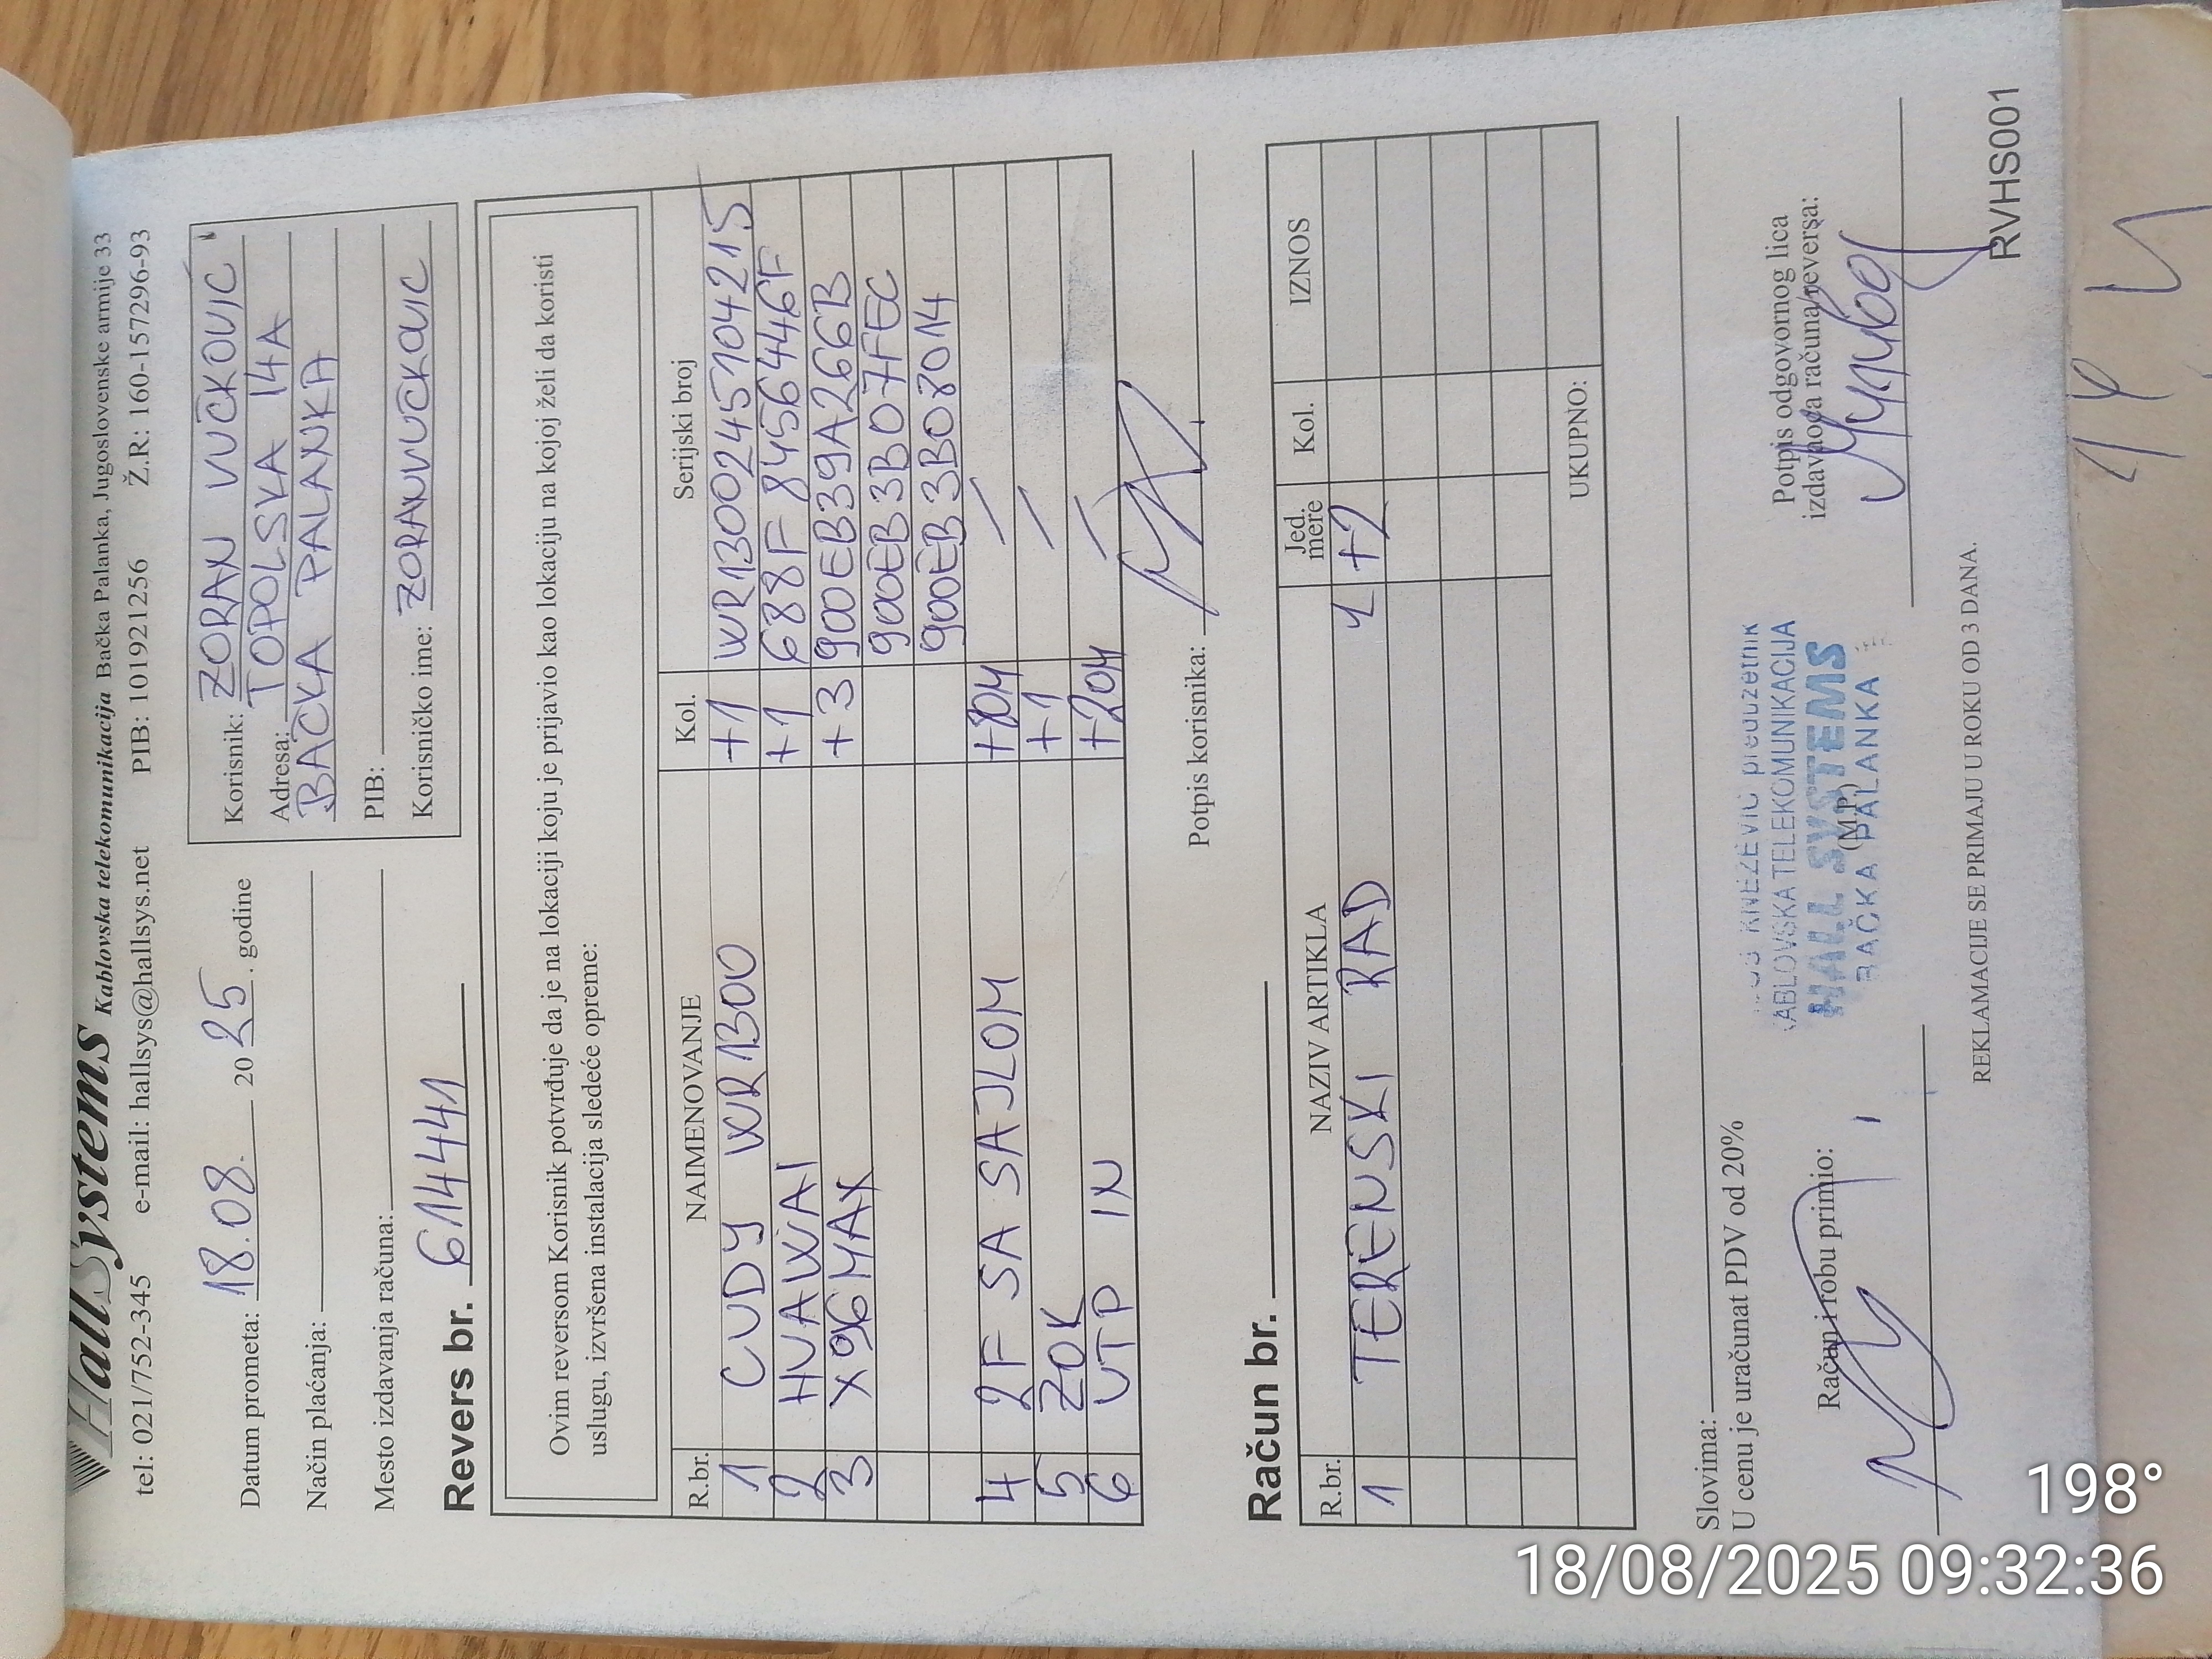 HallSystems Kablovska telekomunikacija Bačka Palanka, Jugoslovenske armije 33
tel: 021/752-345 e-mail: hallsys@hallsys.net PIB: 101921256 Ž.R: 160-157296-93
Datum prometa: 18.08. 2025. godine
Način plaćanja:
Mesto izdavanja računa:
Korisnik: ZORAN VUČKOVIĆ
Adresa: TOPOLSKA 14A
BAČKA PALANKA
PIB:
Korisničko ime: ZORANVUČKOVIC
Revers br. 614441
Ovim reversom Korisnik potvrđuje da je na lokaciji koju je prijavio kao lokaciju na kojoj želi da koristi
uslugu, izvršena instalacija sledeće opreme:
R.br. NAIMENOVANJE Kol. Serijski broj
1 CUDY WR1300 +1 WR13002451104215
2 HUAWAI +1 688F8456446F
3 X96MAX +3 900EB39A266B
900EB3B07FEC
900EB3B08014
4 2F SA SAJLOM +80M /
5 ZOK +1 /
6 UTP IN +20M /
Potpis korisnika:
Račun br.
R.br. NAZIV ARTIKLA Jed. mere Kol. IZNOS
1 TERENSKI RAD +2
UKUPNO:
Slovima:
U cenu je uračunat PDV od 20%
Račun i robu primio:
KNEZEVIC preduzetnik
KABLOVSKA TELEKOMUNIKACIJA
HALL SYSTEMS
(M.P.)
BAČKA PALANKA
Potpis odgovornog lica
izdavaoca računa/reversa:
REKLAMACIJE SE PRIMAJU U ROKU OD 3 DANA.
RVHS001
198°
18/08/2025 09:32:36